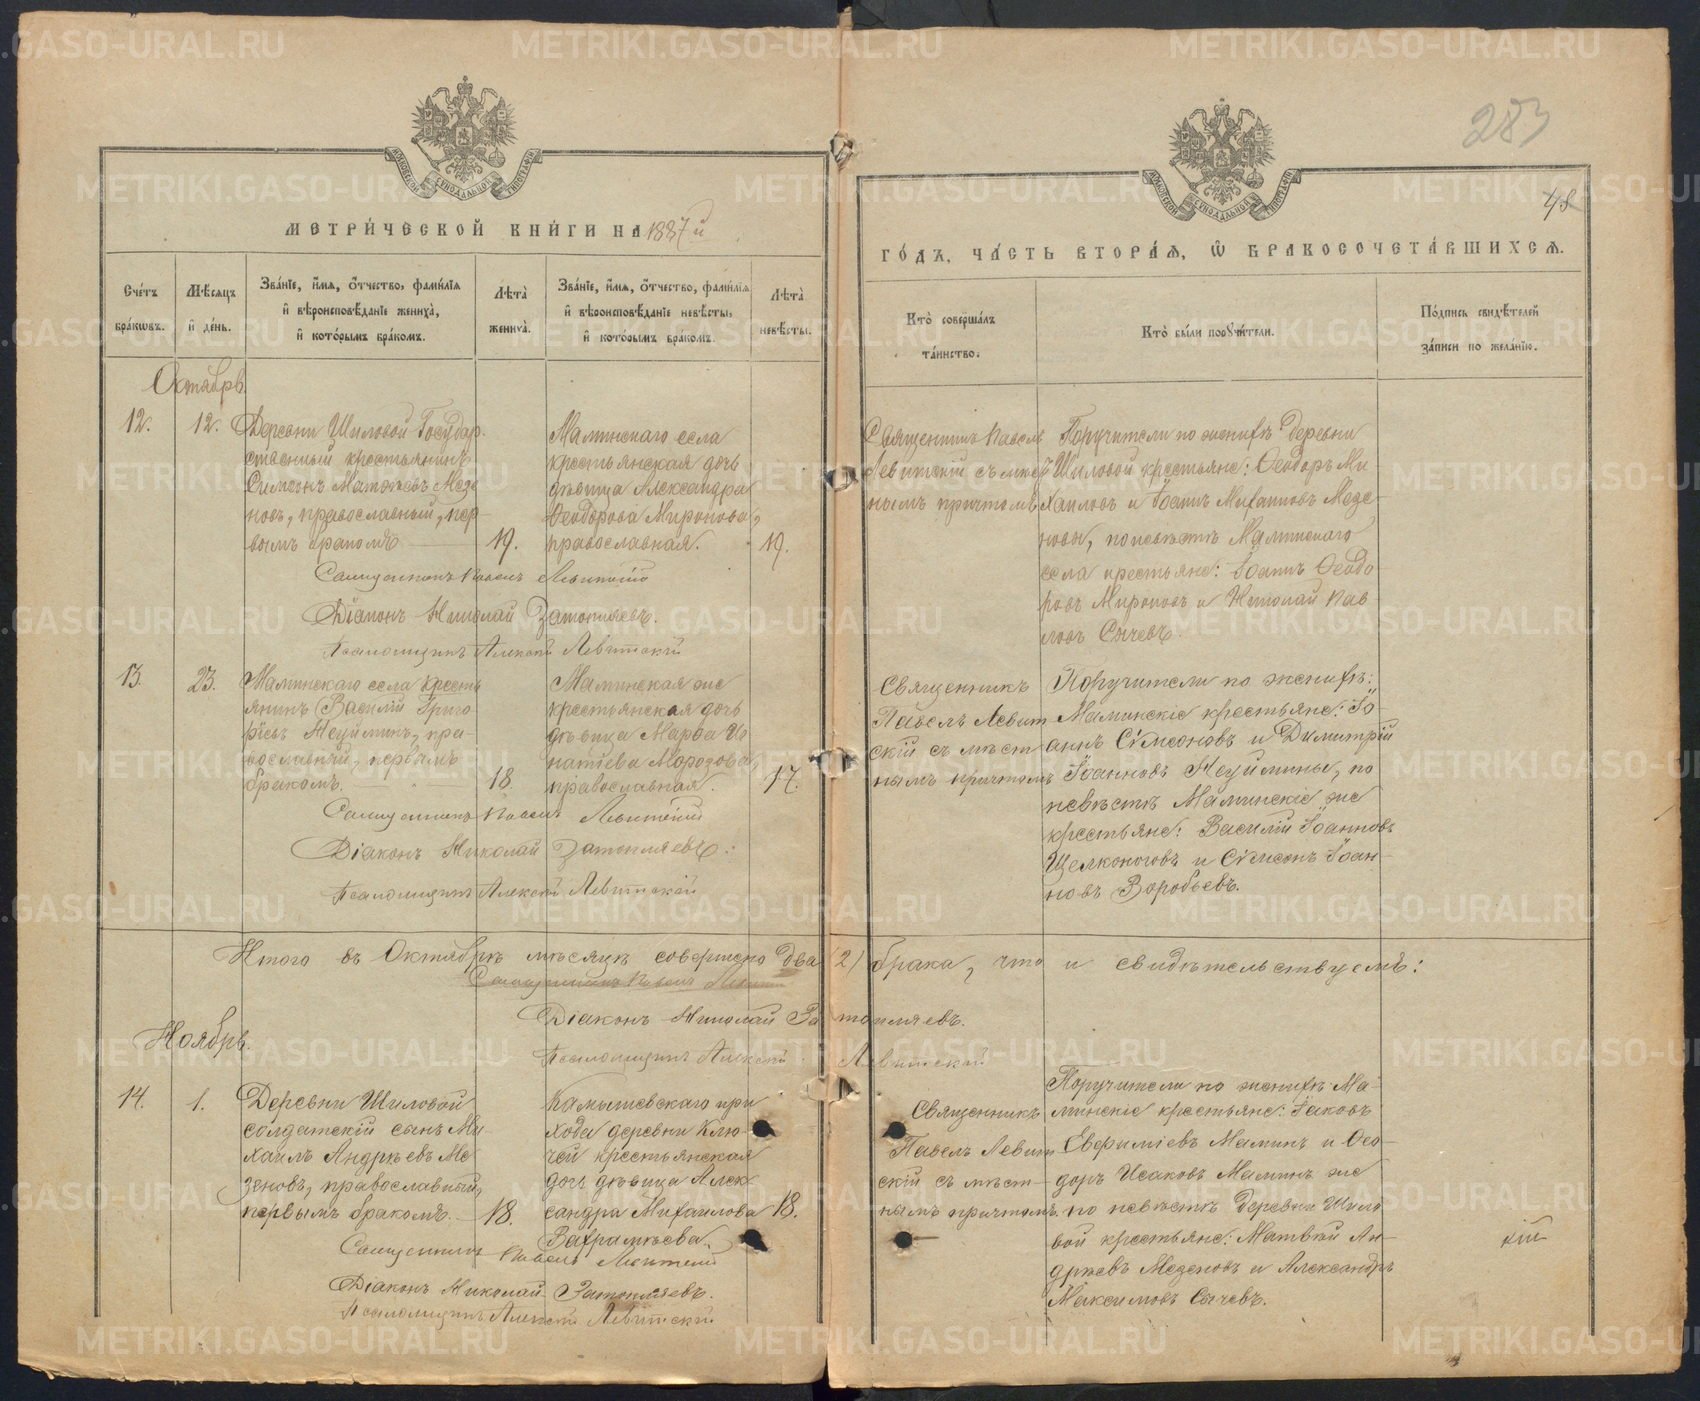 283
48
МЕТРИ́ЧЕСКОЙ КНИ́ГИ НА 1887 й
ГО́ДЪ, ЧА́СТЬ ВТОРА́Я, Ѽ БРАКОСОЧЕТА́ВШИХСЯ.
Сче́тъ бра́кѡвъ.
Мѣ́сяцъ и҆ де́нь.
Зва́нїе, и҆́мя, ѻ҆́тчество, фами́лїя
и҆ вѣроисповѣ́данїе жениха̀,
и҆ кото́рымъ бра́комъ.
Лѣ́та жениха̀.
Зва́нїе, и҆́мя, ѻ҆́тчество, фами́лїя
и҆ вѣроисповѣ́данїе невѣ́сты,
и҆ кото́рымъ бра́комъ.
Лѣ́та невѣ́сты.
Кто̀ соверша́лъ
та́инство.
Кто̀ бы́ли порꙋчи́тели.
По́дпись свидѣ́телей
за́писи по жела́нїю.
Октябрь
12.
12.
Деревни Шиловой Государ-
ственный крестьянинъ
Симеонъ Матѳеевъ Мезе
новъ, православный, пер-
вымъ бракомъ
19.
Маминскаго села
крестьянская дочь
дѣвица Александра
Ѳеодорова Миронова,
православная.
19.
Священникъ Павелъ
Левитскій съ мѣст
нымъ причтомъ
Поручители по женихѣ деревни
Шиловой крестьяне: Ѳеодоръ Ми-
хаиловъ и Іоаннъ Михаиловъ Мезе-
новы, по невѣстѣ Маминскаго
села крестьяне: Іоаннъ Ѳеодо-
ровъ Мироновъ и Николай Пав
ловъ Сычевъ.
Священникъ Павелъ Левитскій
Діаконъ Николай Затопляевъ.
Псаломщикъ Алексѣй Левитскій
13.
23.
Маминскаго села кресть
янинъ Василій Григо
рьевъ Неуйминъ, пра-
вославный, первымъ
бракомъ.
18
Маминская же
крестьянская дочь
дѣвица Марѳа Иг
натіева Морозова,
православная.
17.
Священникъ
Павелъ Левит
скій съ мѣст
нымъ причтомъ
Поручители по женихѣ:
Маминскіе крестьяне: Іо-
аннъ Сѵмеоновъ и Димитрій
Іоанновъ Неуймины, по
невѣстѣ Маминскіе же
крестьяне: Василій Іоанновъ
Щелконоговъ и Сѵмеонъ Іоан-
новъ Воробьевъ.
Священникъ Павелъ Левитскій
Діаконъ Николай Затопляевъ.
Псаломщикъ Алексѣй Левитскій
Итого въ Октябрѣ мѣсяцѣ совершено два (2) брака, что и свидѣтельствуемъ:
Священникъ Павелъ Левитскій
Діаконъ Николай Затопляевъ.
Псаломщикъ Алексѣй Левитскій
Ноябрь.
14.
1.
Деревни Шиловой
солдатскій сынъ Ми
хаилъ Андреевъ Ме
зеновъ, православный,
первымъ бракомъ.
18.
Камышевскаго при
хода деревни Клю-
чей крестьянская
дочь дѣвица Алек
сандра Михаилова
Вахрамѣева.
18.
Священникъ
Павелъ Левит
скій съ мѣст-
нымъ причтомъ.
Поручители по женихѣ Ма-
минскіе крестьяне: Іаковъ
Евфиміевъ Маминъ и Ѳео-
доръ Исаковъ Маминъ же
по невѣстѣ деревни Шило
вой крестьяне: Матвѣй Ан-
дреевъ Мезеновъ и Александръ
Максимовъ Сычевъ.
кій
Священникъ Павелъ Левитскій
Діаконъ Николай Затопляевъ.
Псаломщикъ Алексѣй Левитскій
METRIKI.GASO-URAL.RU